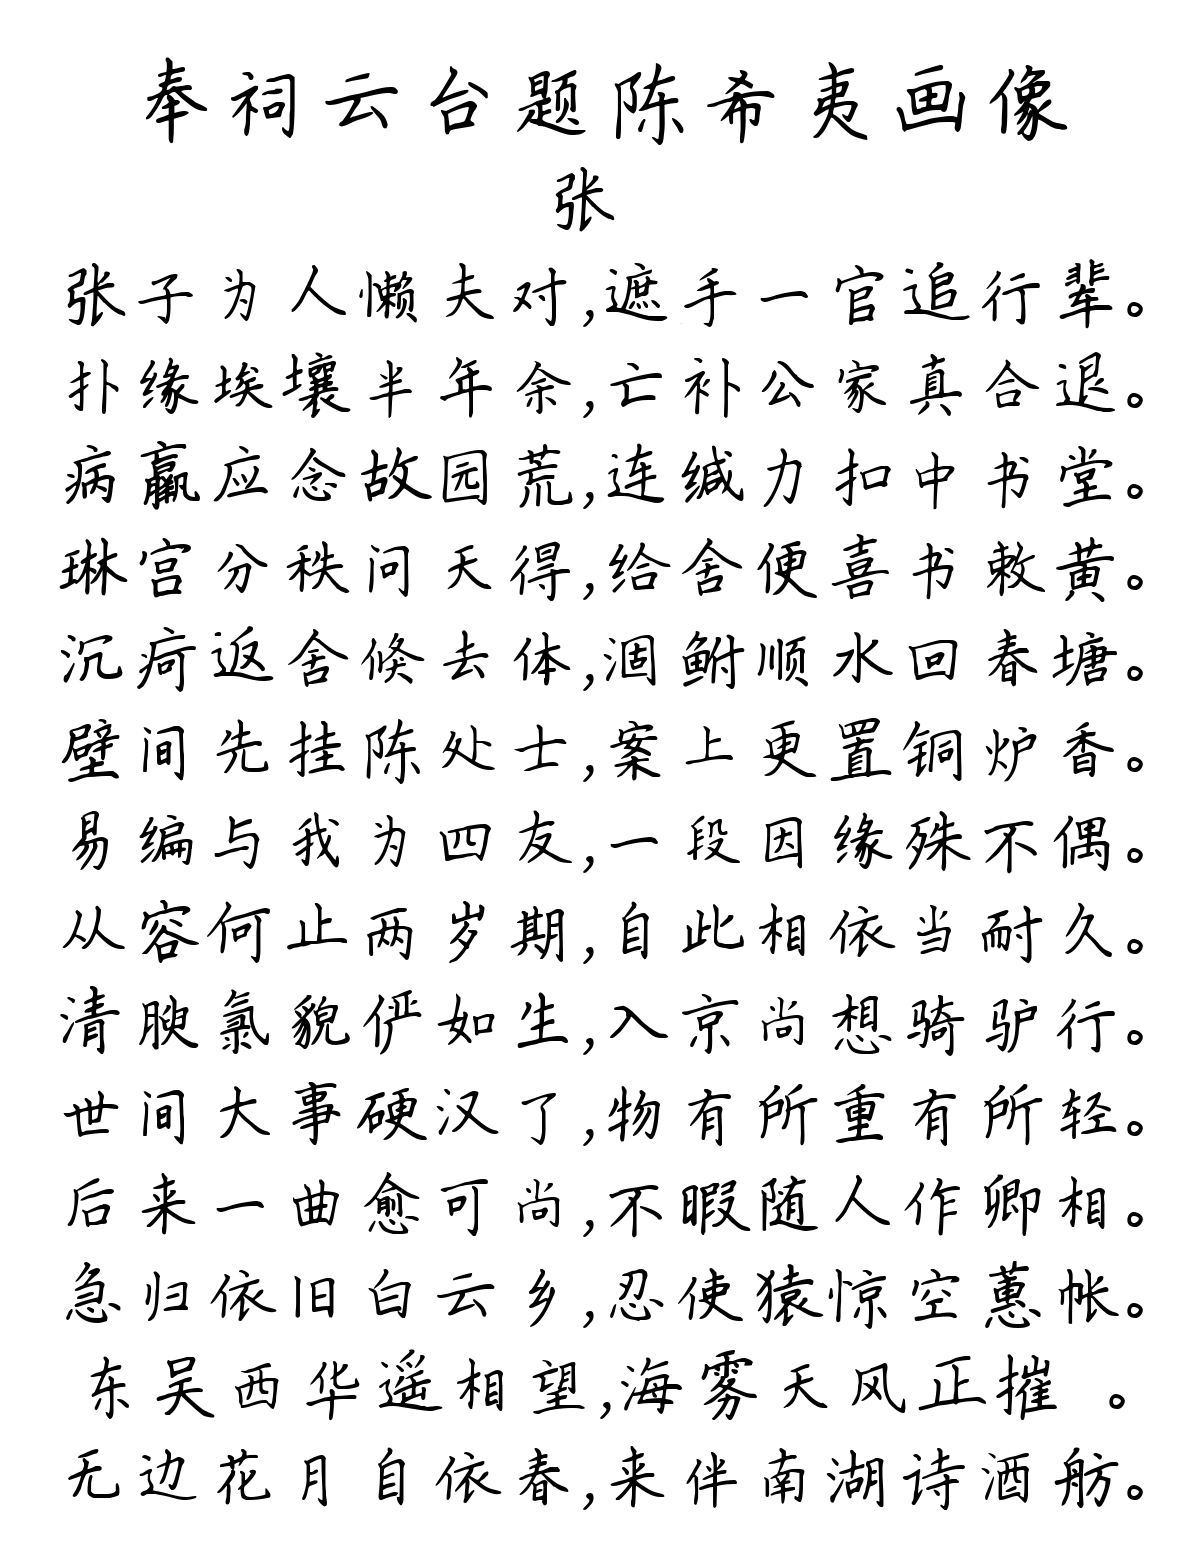 奉祠云台题陈希夷画像
张
张子为人懒夫对,遮手一官追行辈。
扑缘埃壤半年余,亡补公家真合退。
病羸应念故园荒,连缄力扣中书堂。
琳宫分秩问天得,给舍便喜书敕黄。
沉疴返舍倏去体,涸鲋顺水回春塘。
壁间先挂陈处士,案上更置铜炉香。
易编与我为四友,一段因缘殊不偶。
从容何止两岁期,自此相依当耐久。
清腴氯貌俨如生,入京尚想骑驴行。
世间大事硬汉了,物有所重有所轻。
后来一曲愈可尚,不暇随人作卿相。
急归依旧白云乡,忍使猿惊空蕙帐。
东吴西华遥相望,海雾天风正摧 。
无边花月自依春,来伴南湖诗酒舫。